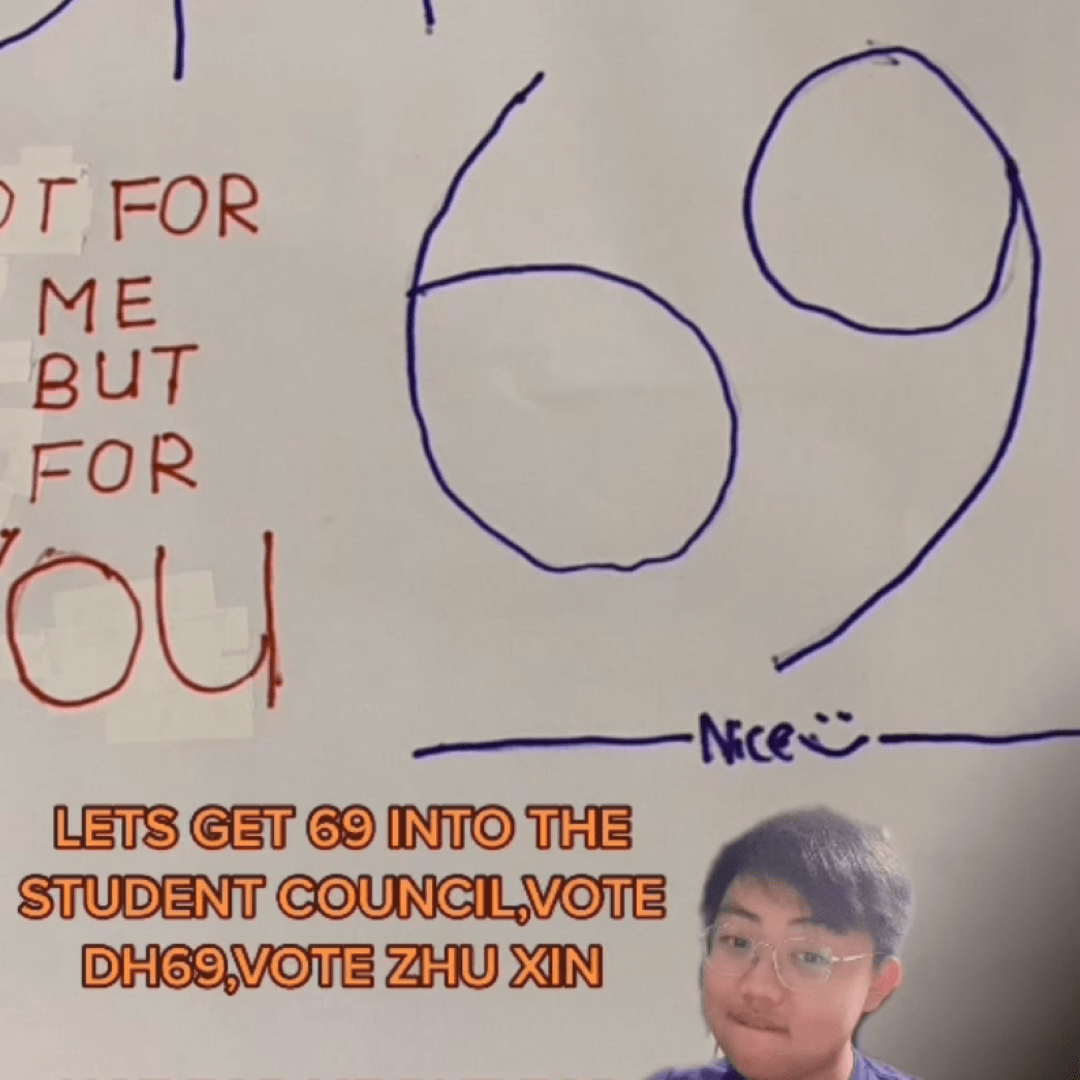 FOR
ME
BUT
FOR
YOU
69
Nice
LETS GET 69 INTO THE
STUDENT COUNCIL,VOTE
DH69,VOTE ZHU XIN